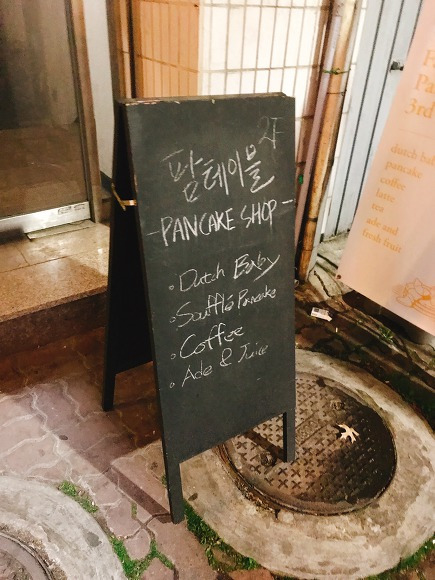 2F
팜테이블
-PANCAKE SHOP-
◦ Dutch Baby
◦ Soufflé Pancake
◦ Coffee
◦ Ade & Juice
3rd
dutch bab
pancake
coffee
latte
tea
ade and
fresh fruit